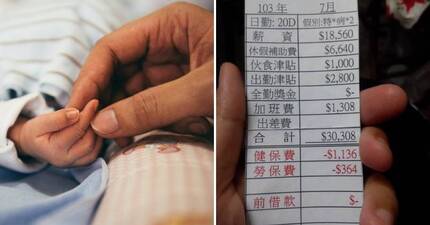 103 年 7月
日勤:20D 個別:特*病*2
薪 資 $18,560
休假補助費 $6,640
伙食津貼 $1,000
出勤津貼 $2,800
全勤獎金 $-
加班費 $1,308
出差費
合 計 $30,308
健保費 -$1,136
勞保費 -$364
前借款 $-